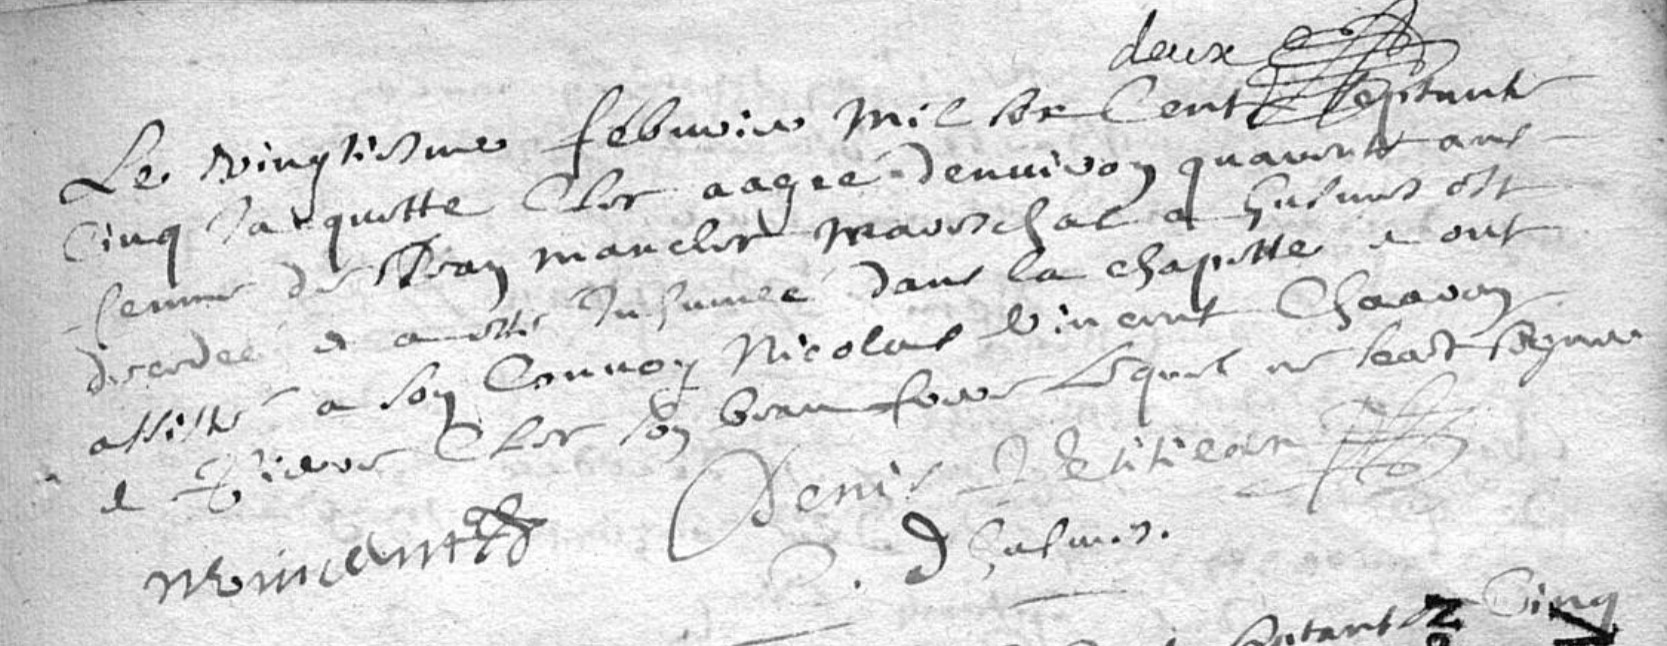 deux
Le vingtiesme febvrier Mil six Cent septante
Cinq Jacquette Cler aagée denuiron quarente ans
femme de Jean manclier mareschal a est
decedée et a esté Inhumée dans la chapelle et ont
assisté a son Conuoy Nicolas Vincent Charon
et Pierre Cler son beau frere Lequel ne scait signer
N Vincent Denis Petitiean
P. d
septante Cinq